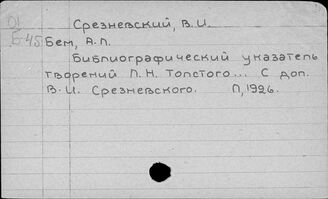 01
Б-45
Срезневский, В.И.
Бем, А.Л.
Библиографический указатель
творений Л.Н. Толстого... С доп.
В.И. Срезневского. Л, 1926.